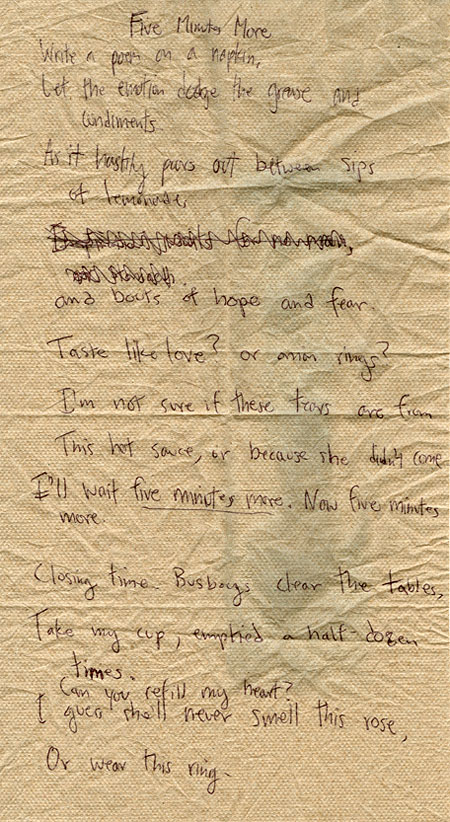 Five Minutes More
Write a poem on a napkin,
Let the emotion dodge the grease and
condiments.
As it hastily pours out between sips
of lemonade,
and bouts of hope and fear.
Taste like love? or onion rings?
I'm not sure if these tears are from
This hot sauce, or because she didn't come
I'll wait five minutes more. Now five minutes
more.
Closing time. Busboys clear the tables,
Take my cup, emptied a half-dozen
times.
Can you refill my heart?
I guess she'll never smell this rose,
Or wear this ring.